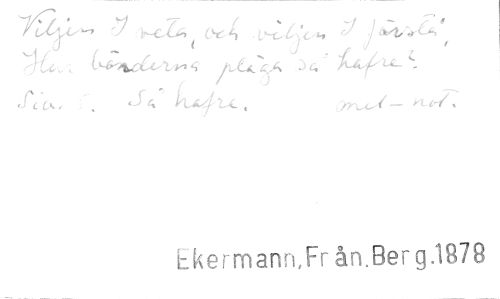 Viljen I veta, och viljen I förstå,
Hur bönderna pläga så hafre?
Så hafre. mel-not.
Ekermann, Från. Berg. 1878